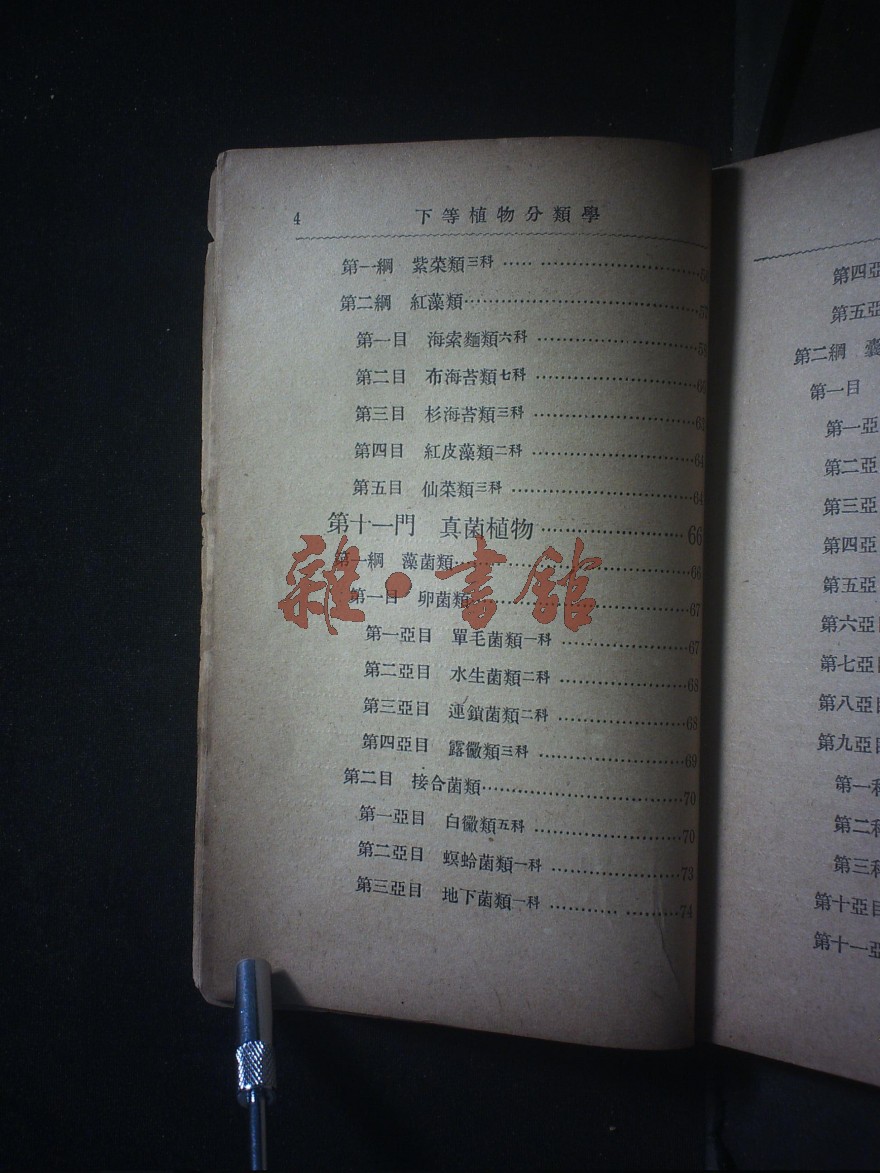 4 下等植物分類學
第一綱 紫菜類三科
第二綱 紅藻類 57
第一目 海索麵類六科 58
第二目 布海苔類七科 60
第三目 杉海苔類三科 63
第四目 紅皮藻類二科 64
第五目 仙菜類三科 64
第十一門 真菌植物 66
第一綱 藻菌類 66
第一目 卵菌類 67
第一亞目 單毛菌類一科 67
第二亞目 水生菌類二科 68
第三亞目 連鎖菌類二科 68
第四亞目 露黴類三科 69
第二目 接合菌類 70
第一亞目 白黴類五科 70
第二亞目 螟蛉菌類一科 73
第三亞目 地下菌類一科 74
雜·書館
第四亞
第五亞
第二綱 囊
第一目
第一亞
第二亞
第三亞
第四亞
第五亞
第六亞目
第七亞目
第八亞目
第九亞目
第一科
第二科
第三科
第十亞目
第十一亞